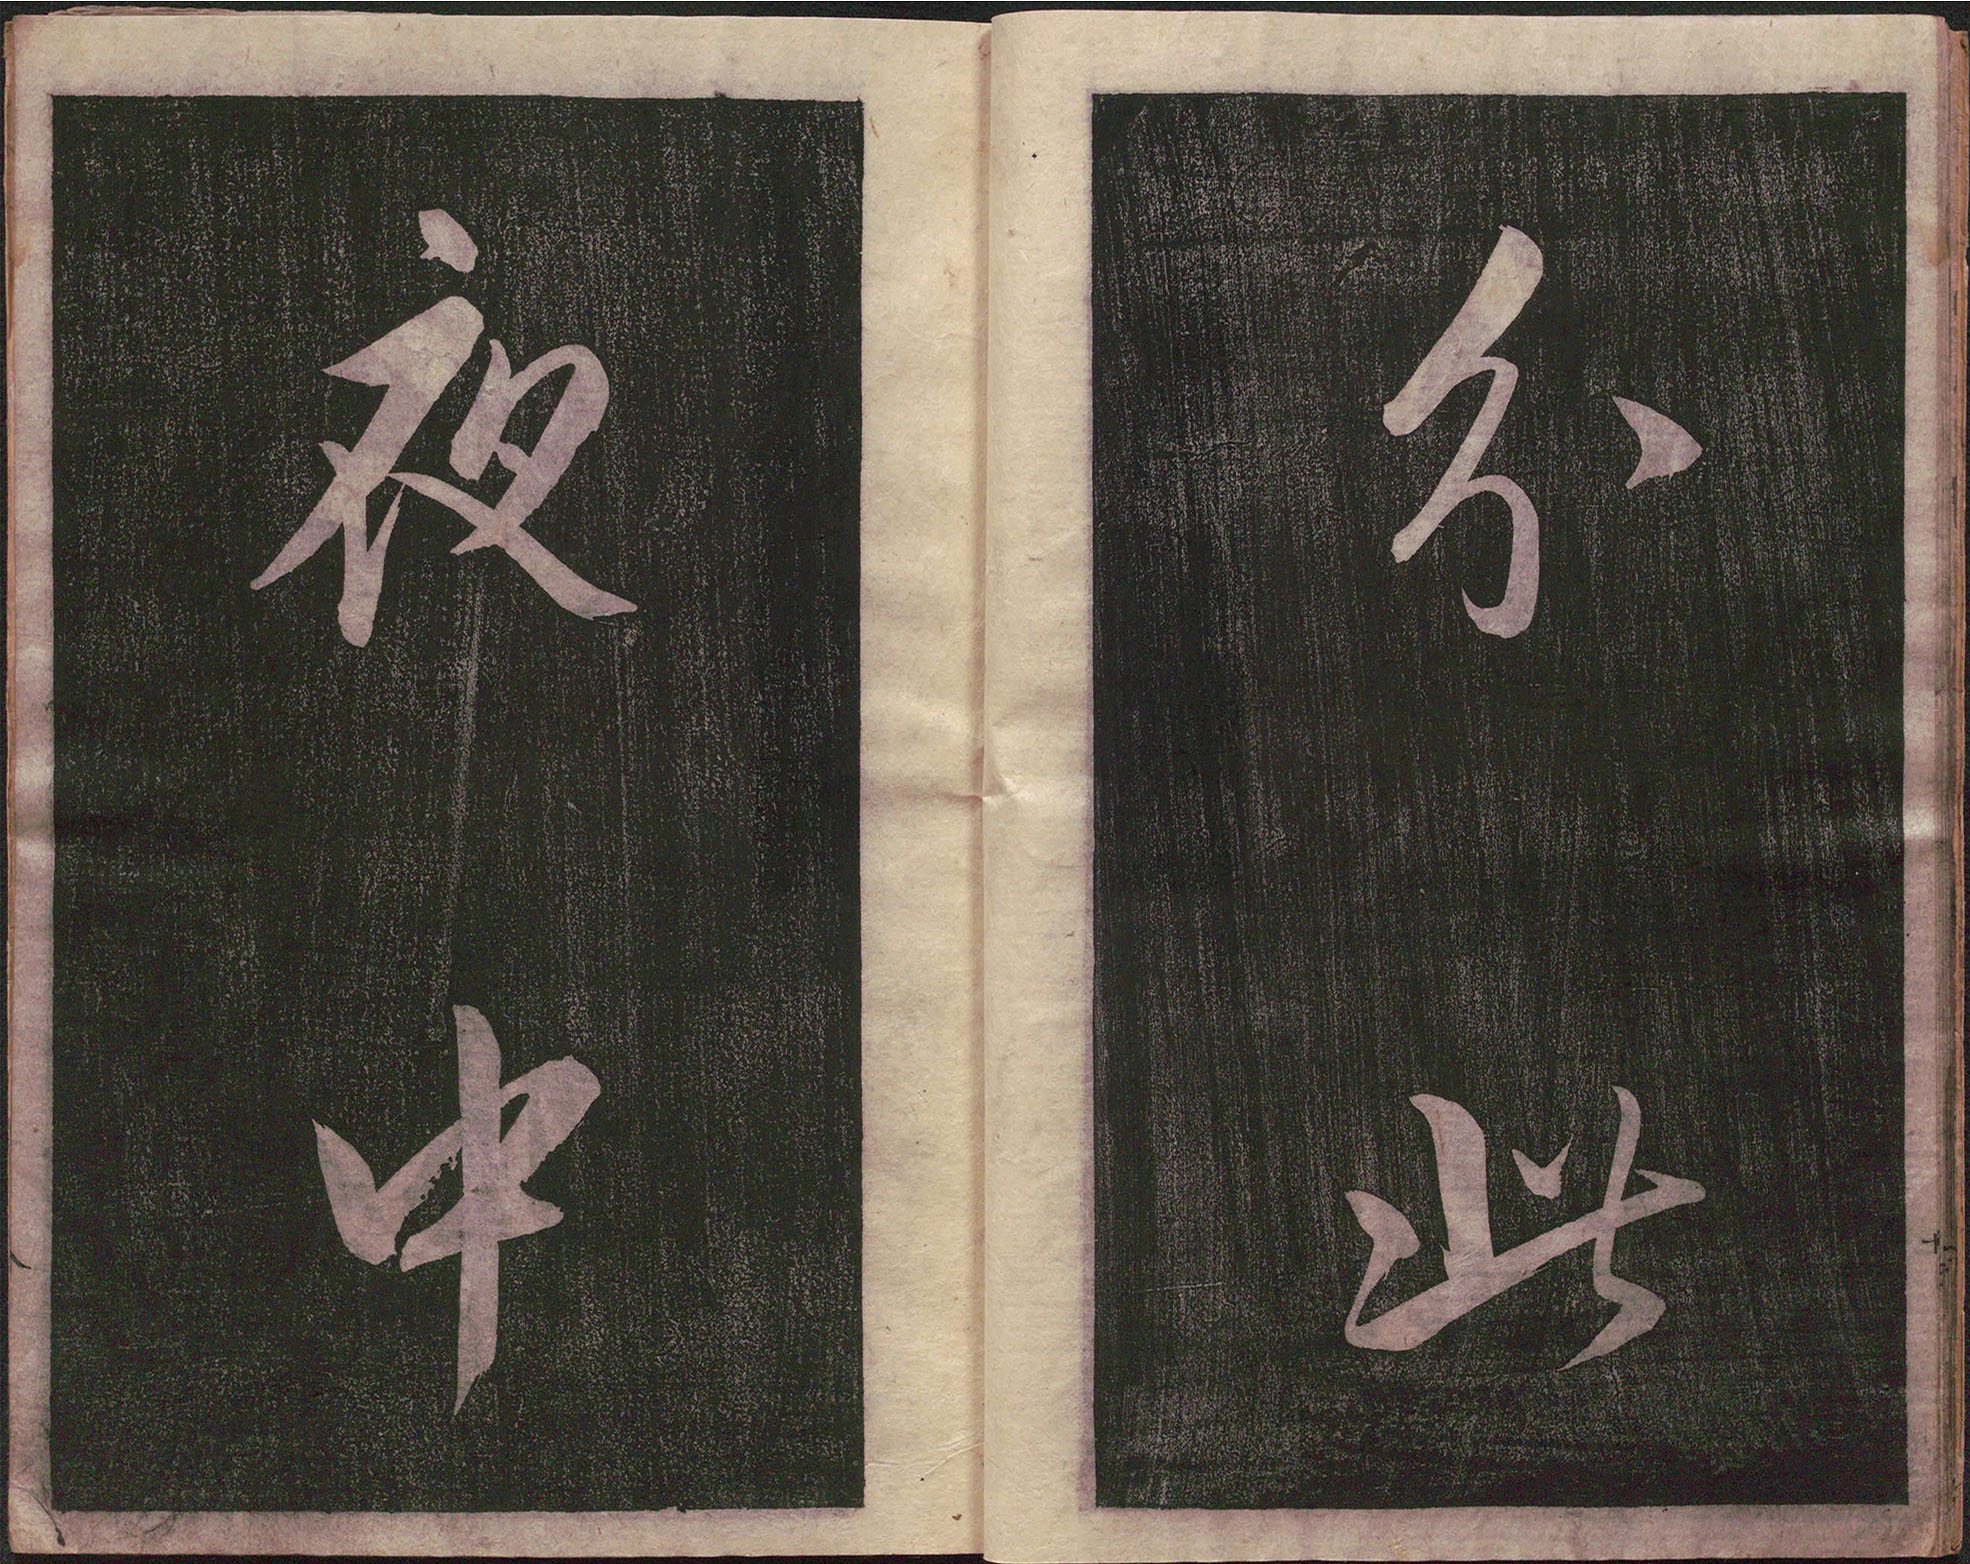 分此
夜中